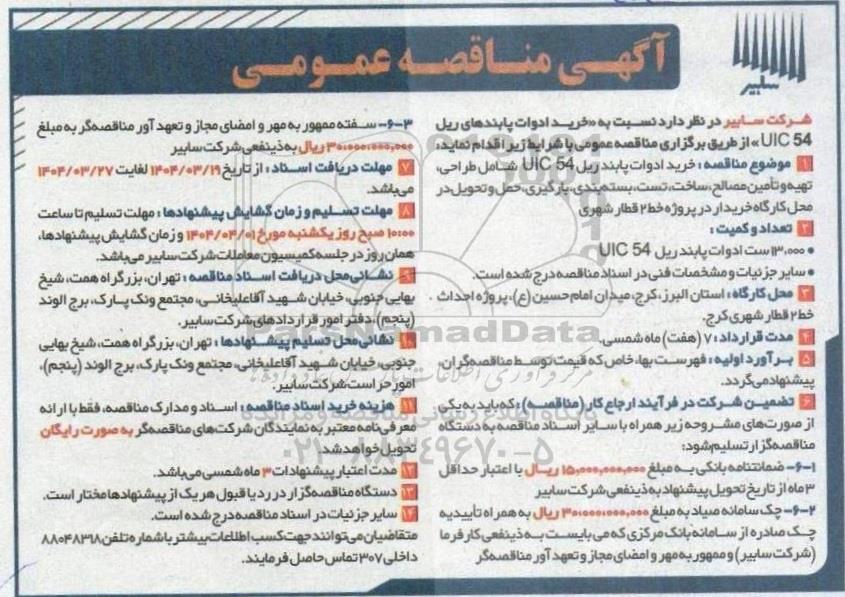 آگهی مناقصه عمومی
سابیر
شرکت سابیر در نظر دارد نسبت به «خرید ادوات پابندهای ریل
UIC 54» از طریق برگزاری مناقصه عمومی با شرایط زیر اقدام نماید:
۱ موضوع مناقصه : خرید ادوات پابند ریل UIC 54 شامل طراحی،
تهیه و تأمین مصالح، ساخت، تست، بسته بندی، بارگیری، حمل و تحویل در
محل کارگاه خریدار در پروژه خط ۲ قطار شهری
۲ تعداد و کمیت :
• ۱۳،۰۰۰ ست ادوات پابند ریل UIC 54
• سایر جزئیات و مشخصات فنی در اسناد مناقصه درج شده است.
۳ محل کارگاه : استان البرز، کرج، میدان امام حسین (ع)، پروژه احداث
خط ۲ قطار شهری کرج.
۴ مدت قرارداد : ۷ (هفت) ماه شمسی.
۵ برآورد اولیه : فهرست بها، خاص که قیمت توسط مناقصه‌گران،
پیشنهاد می‌گردد.
۶ تضمین شرکت در فرآیند ارجاع کار (مناقصه) : که باید به یکی
از صورت‌های مشروحه زیر همراه با سایر اسناد مناقصه به دستگاه
مناقصه‌گزار تسلیم شود:
۶-۱- ضمانتنامه بانکی به مبلغ ۱۵,۰۰۰,۰۰۰,۰۰۰ ریال با اعتبار حداقل
۳ ماه از تاریخ تحویل پیشنهاد به ذینفعی شرکت سابیر
۶-۲- چک سامانه صیاد به مبلغ ۳۰,۰۰۰,۰۰۰,۰۰۰ ریال به همراه تأییدیه
چک صادره از سامانه بانک مرکزی که می بایست به ذینفعی کارفرما
(شرکت سابیر) و ممهور به مهر و امضای مجاز و تعهدآور مناقصه‌گر
۶-۳- سفته ممهور به مهر و امضای مجاز و تعهد آور مناقصه‌گر به مبلغ
۳۰,۰۰۰,۰۰۰,۰۰۰ ریال به ذینفعی شرکت سابیر
۷ مهلت دریافت اسناد : از تاریخ ۱۴۰۴/۰۳/۱۹ لغایت ۱۴۰۴/۰۳/۲۷
می‌باشد.
۸ مهلت تسلیم و زمان گشایش پیشنهادها : مهلت تسلیم تا ساعت
۱۰:۰۰ صبح روز یکشنبه مورخ ۱۴۰۴/۰۴/۰۱ و زمان گشایش پیشنهادها،
همان روز در جلسه کمیسیون معاملات شرکت سابیر می‌باشد.
۹ نشانی محل دریافت اسناد مناقصه : تهران، بزرگراه همت، شیخ
بهایی جنوبی، خیابان شهید آقاعلیخانی، مجتمع ونک پارک، برج الوند
(پنجم)، دفتر امور قراردادهای شرکت سابیر.
۱۰ نشانی محل تسلیم پیشنهادها : تهران، بزرگراه همت، شیخ بهایی
جنوبی، خیابان شهید آقاعلیخانی، مجتمع ونک پارک، برج الوند (پنجم)،
امور حراست شرکت سابیر.
۱۱ هزینه خرید اسناد مناقصه : اسناد و مدارک مناقصه، فقط با ارائه
معرفی‌نامه معتبر به نمایندگان شرکت‌های مناقصه‌گر به صورت رایگان
تحویل خواهد شد.
۱۲ مدت اعتبار پیشنهادات ۳ ماه شمسی می‌باشد.
۱۳ دستگاه مناقصه‌گزار در رد یا قبول هر یک از پیشنهادها مختار است.
۱۴ سایر جزئیات در اسناد مناقصه درج شده است.
متقاضیان می‌توانند جهت کسب اطلاعات بیشتر با شماره تلفن ۸۸۰۴۸۳۱۸
داخلی ۳۰۷ تماس حاصل فرمایند.
ParsNamadData
۰۲۱-۸۸۳۴۹۶۷۰-۵